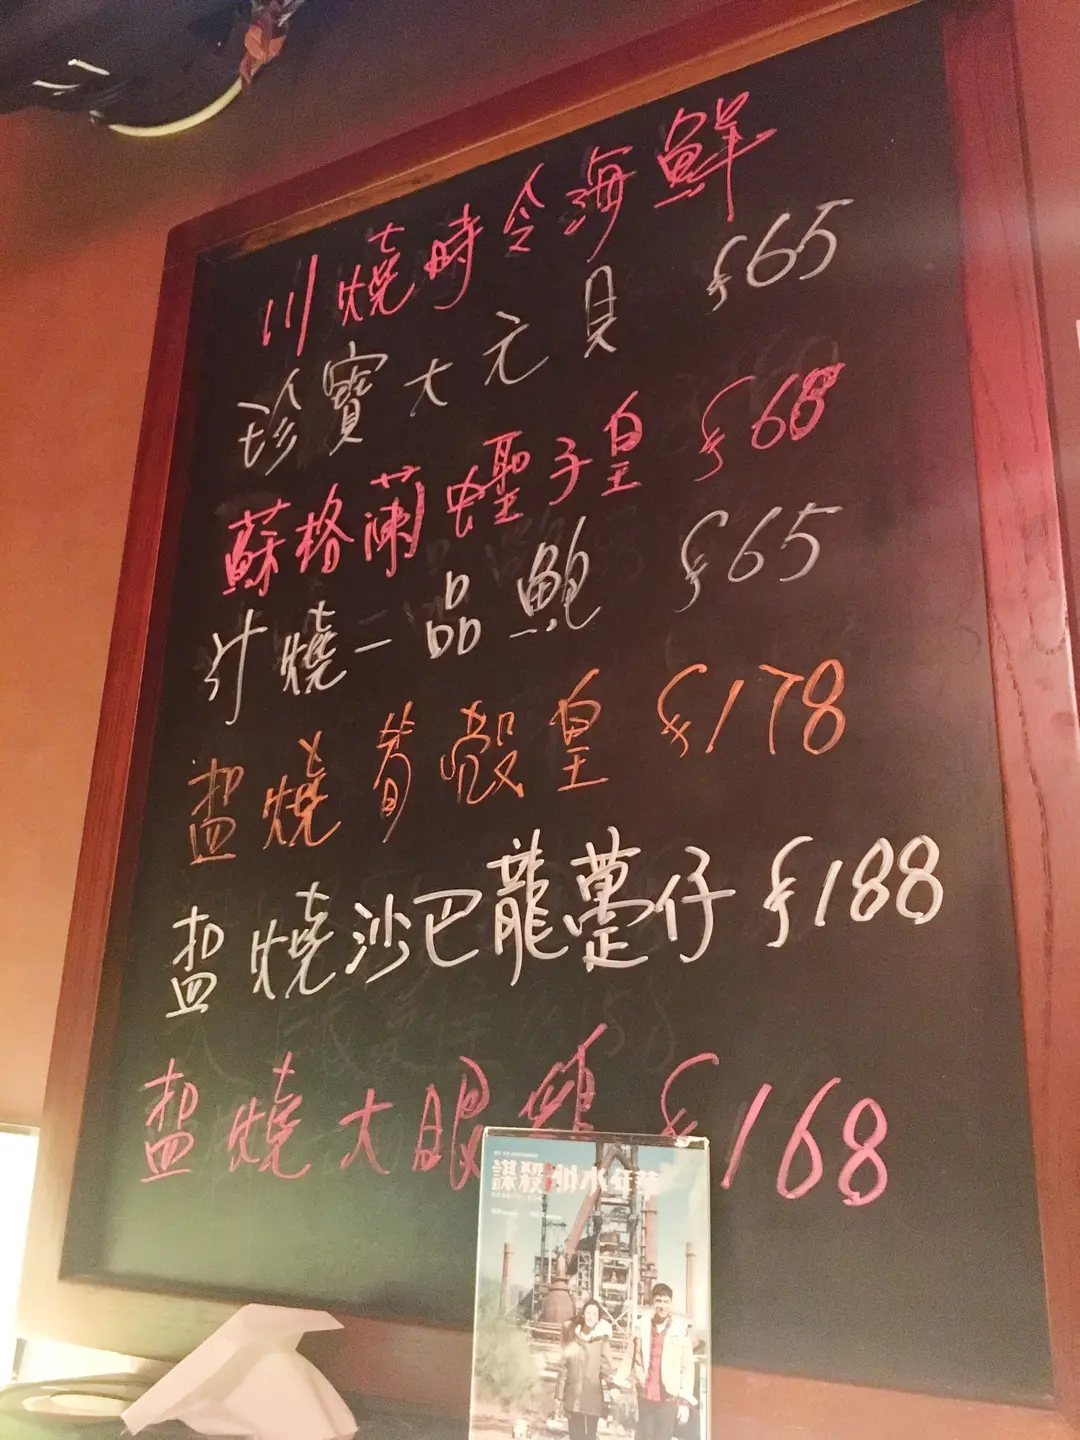 川燒時令海鮮
珍寶大元貝 ¥65
蘇格蘭蟶子皇 ¥68
汁燒一品鮑 ¥65
盐燒脊殼皇 ¥178
盐燒沙巴龍躉仔 ¥188
盐燒大眼雞 ¥168
謀殺似水年華